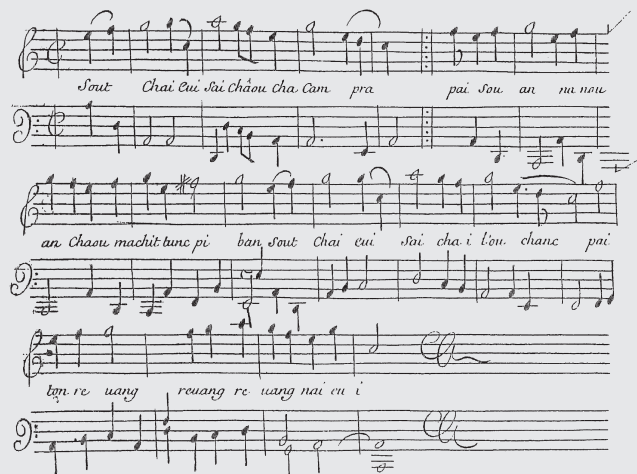 Sout Chai Eui Sai Châou Cha Cam pra pai Sou an nu nau
an Chaou machit tunc pi ban Sout Chai eui Sai cha i l'ou. chanc pai
ton re uang reuang re uang nai eu i